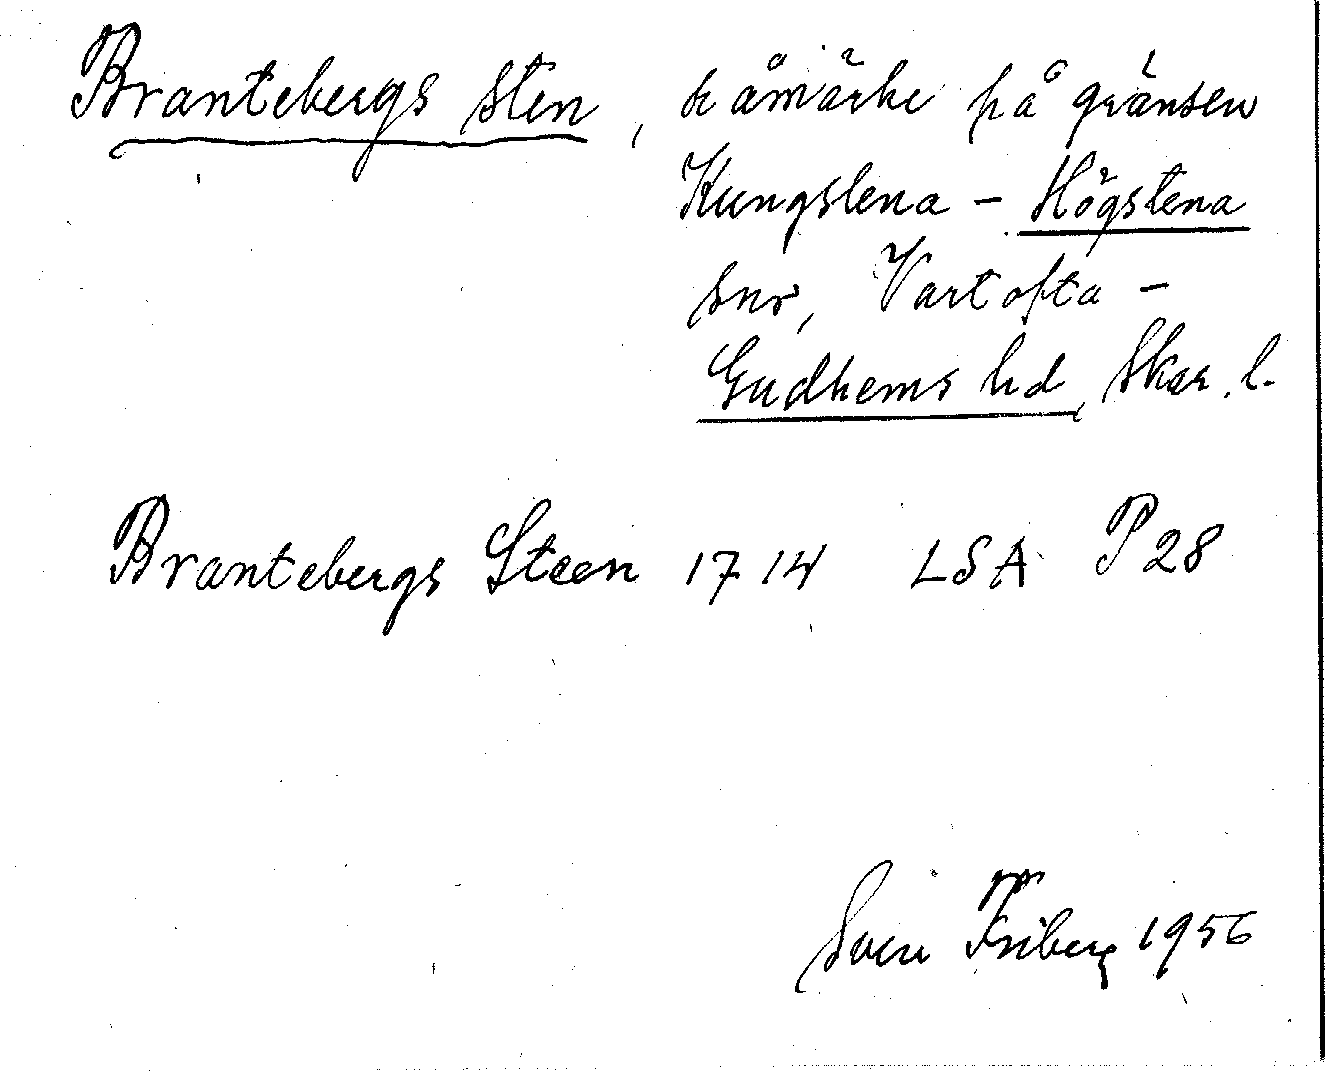 Brantebergs sten, råmärke på gränsen
Kungslena - Högstena
snr, Vartofta -
Gudhems hd, Skar. l.
Brantebergs Steen 1714 LSA P28
Sven Friberg 1956